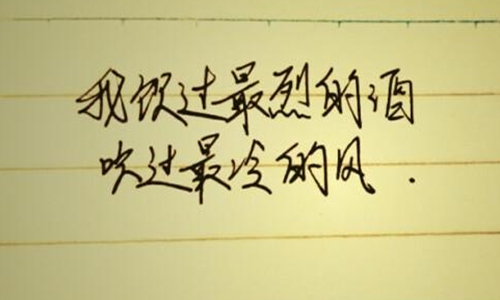 我饮过最烈的酒
吹过最冷的风.